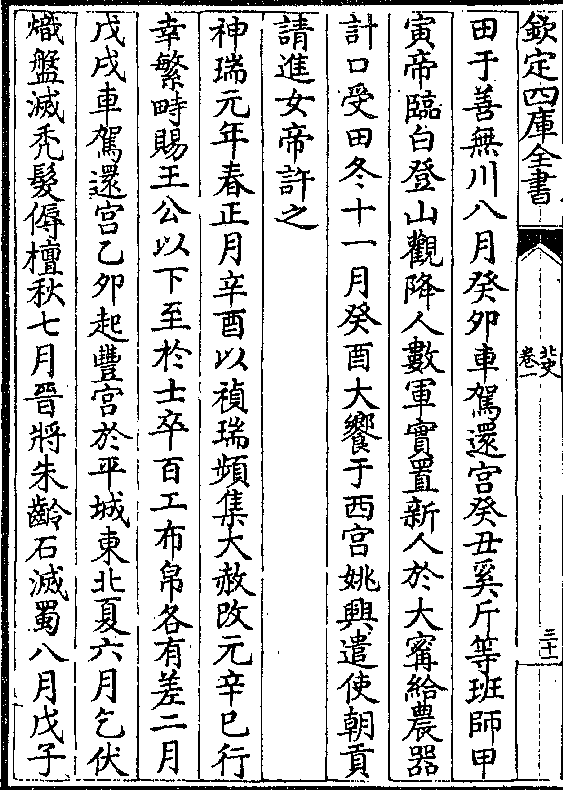 欽定四庫全書
北史
卷一
三十一
田于善無川八月癸卯車駕還宮癸丑奚斤等班師甲
寅帝臨白登山觀降人數軍實置新人於大寗給農器
計口受田冬十一月癸酉大饗于西宮姚興遣使朝貢
請進女帝許之
神瑞元年春正月辛酉以禎瑞頻集大赦改元辛巳行
幸繁畤賜王公以下至於士卒百工布帛各有差二月
戊戌車駕還宮乙卯起豐宮於平城東北夏六月乞伏
熾盤滅禿髮傉檀秋七月晉將朱齡石滅蜀八月戊子